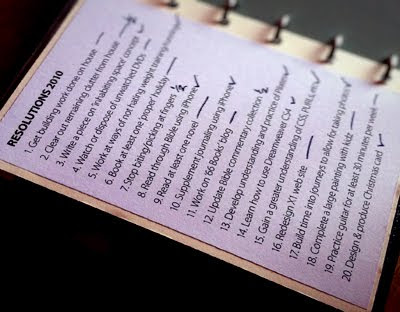 RESOLUTIONS 2010
1. Get building work done on house
2. Clear out remaining clutter from house
3. Write a piece on 'inhabiting space' concept
4. Watch or dispose of unwatched DVDs
5. Work at ways of not hating weight training
6. Book at least one 'proper' holiday
7. Stop biting/picking at fingers ½
8. Read through Bible using iPhone
9. Read at least one novel
10. Supplement journaling using iPhone
11. Work on '66 Books' blog
12. Update Bible commentary collection ½
13. Develop understanding and practice of
14. Learn how to use Dreamweaver CS4
15. Gain a greater understanding of CSS,
16. Redesign X1 web site
17. Build time into journeys to allow for taking photos
18. Complete a large painting with kidz
19. Practice guitar for at least 30 minutes per week
20. Design & produce Christmas card